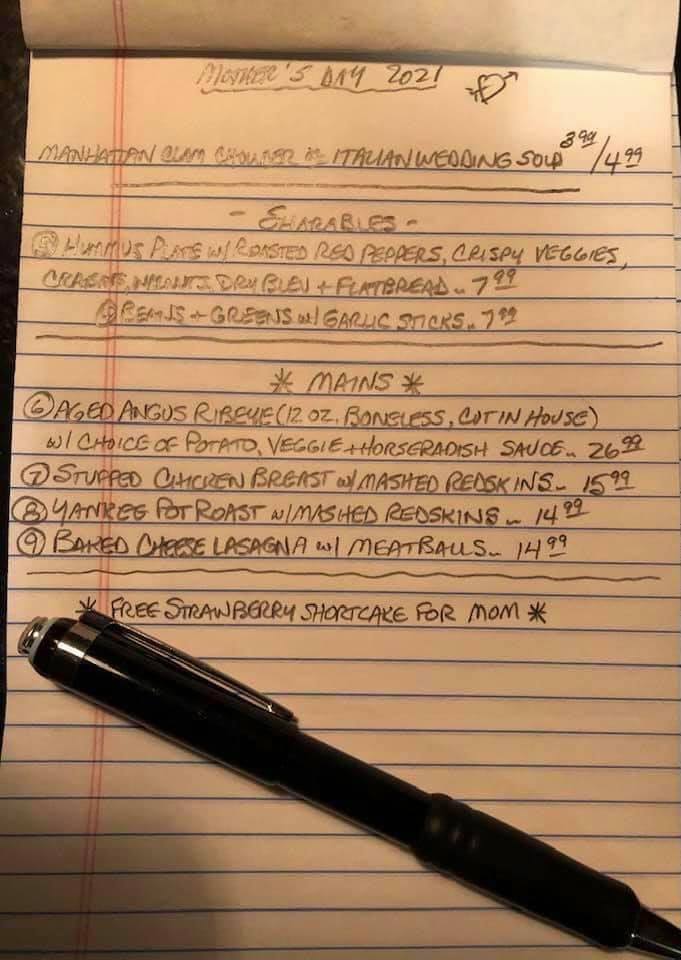 MOTHER'S DAY 2021
MANHATTAN CLAM CHOWDER or ITALIAN WEDDING SOUP 3.99/4.99
- SHARABLES -
⑤ HUMMUS PLATE W/ ROASTED RED PEPPERS, CRISPY VEGGIES,
WALNUTS, DRY BLEU + FLATBREAD.. 7.99
BEANS + GREENS W/ GARLIC STICKS.. 7.99
* MAINS *
⑥ AGED ANGUS RIBEYE (12 OZ. BONELESS, CUT IN HOUSE)
W/ CHOICE OF POTATO, VEGGIE + HORSERADISH SAUCE.. 26.99
⑦ STUFFED CHICKEN BREAST W/ MASHED REDSKINS.. 15.99
⑧ YANKEE POT ROAST W/ MASHED REDSKINS.. 14.99
⑨ BAKED CHEESE LASAGNA W/ MEATBALLS.. 14.99
* FREE STRAWBERRY SHORTCAKE FOR MOM *